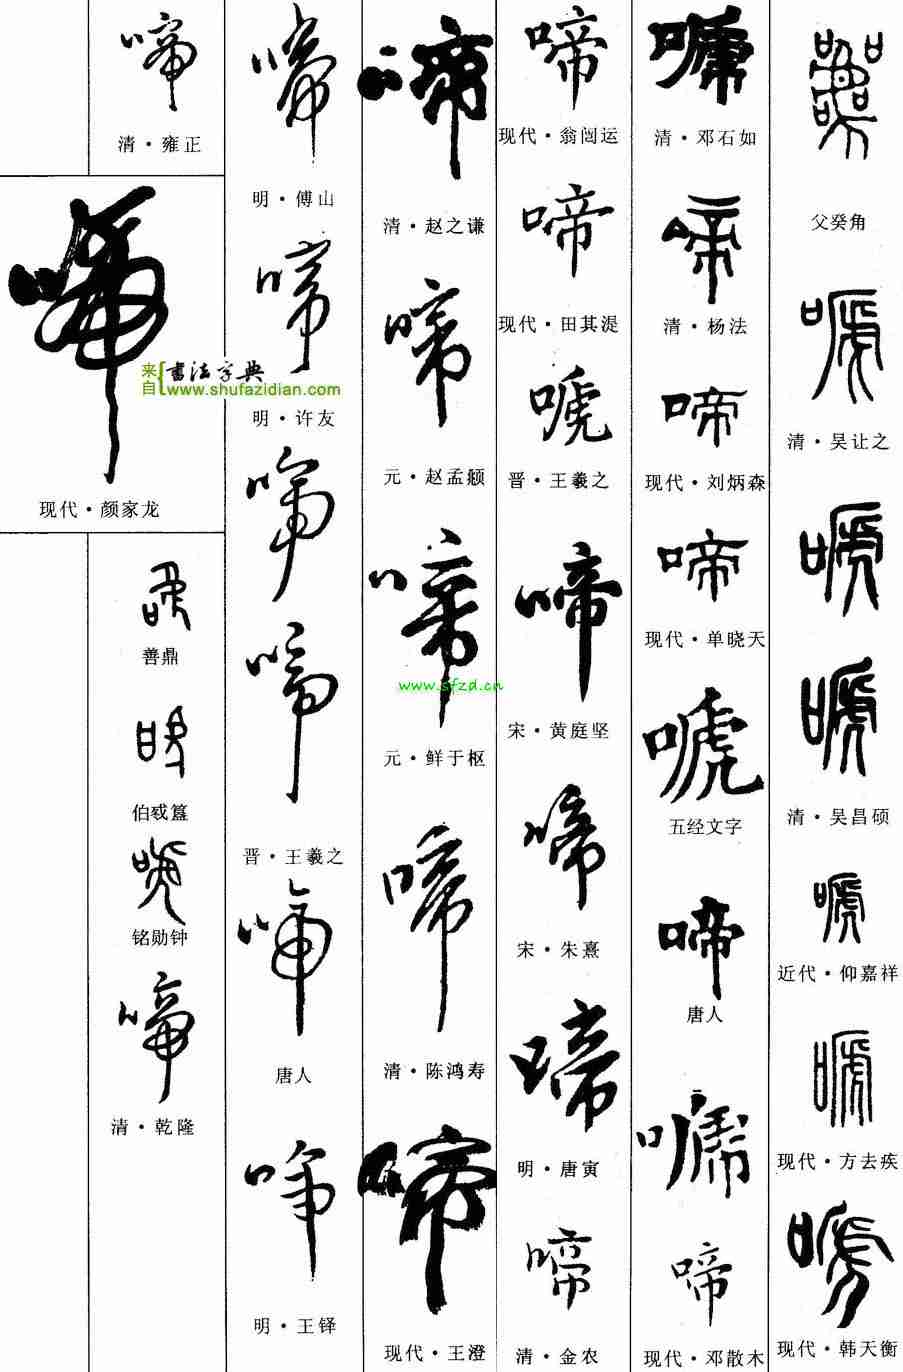 啼
清·雍正
啼
现代·颜家龙
来自{书法字典
www.shufazidian.com
善鼎
伯㦰簋
铭勋钟
啼
清·乾隆
啼
明·傅山
啼
明·许友
啼
啼
晋·王羲之
啼
唐人
啼
明·王铎
啼
清·赵之谦
啼
元·赵孟頫
啼
www.sfzd.cn
元·鲜于枢
啼
清·陈鸿寿
啼
现代·王澄
啼
现代·翁闿运
啼
现代·田其湜
嗁
晋·王羲之
啼
宋·黄庭坚
啼
宋·朱熹
啼
明·唐寅
啼
清·金农
嗁
清·邓石如
啼
清·杨法
啼
现代·刘炳森
啼
现代·单晓天
嗁
五经文字
啼
唐人
嗁
啼
现代·邓散木
父癸角
嗁
清·吴让之
嗁
嗁
清·吴昌硕
嗁
近代·仰嘉祥
嗁
现代·方去疾
嗁
现代·韩天衡